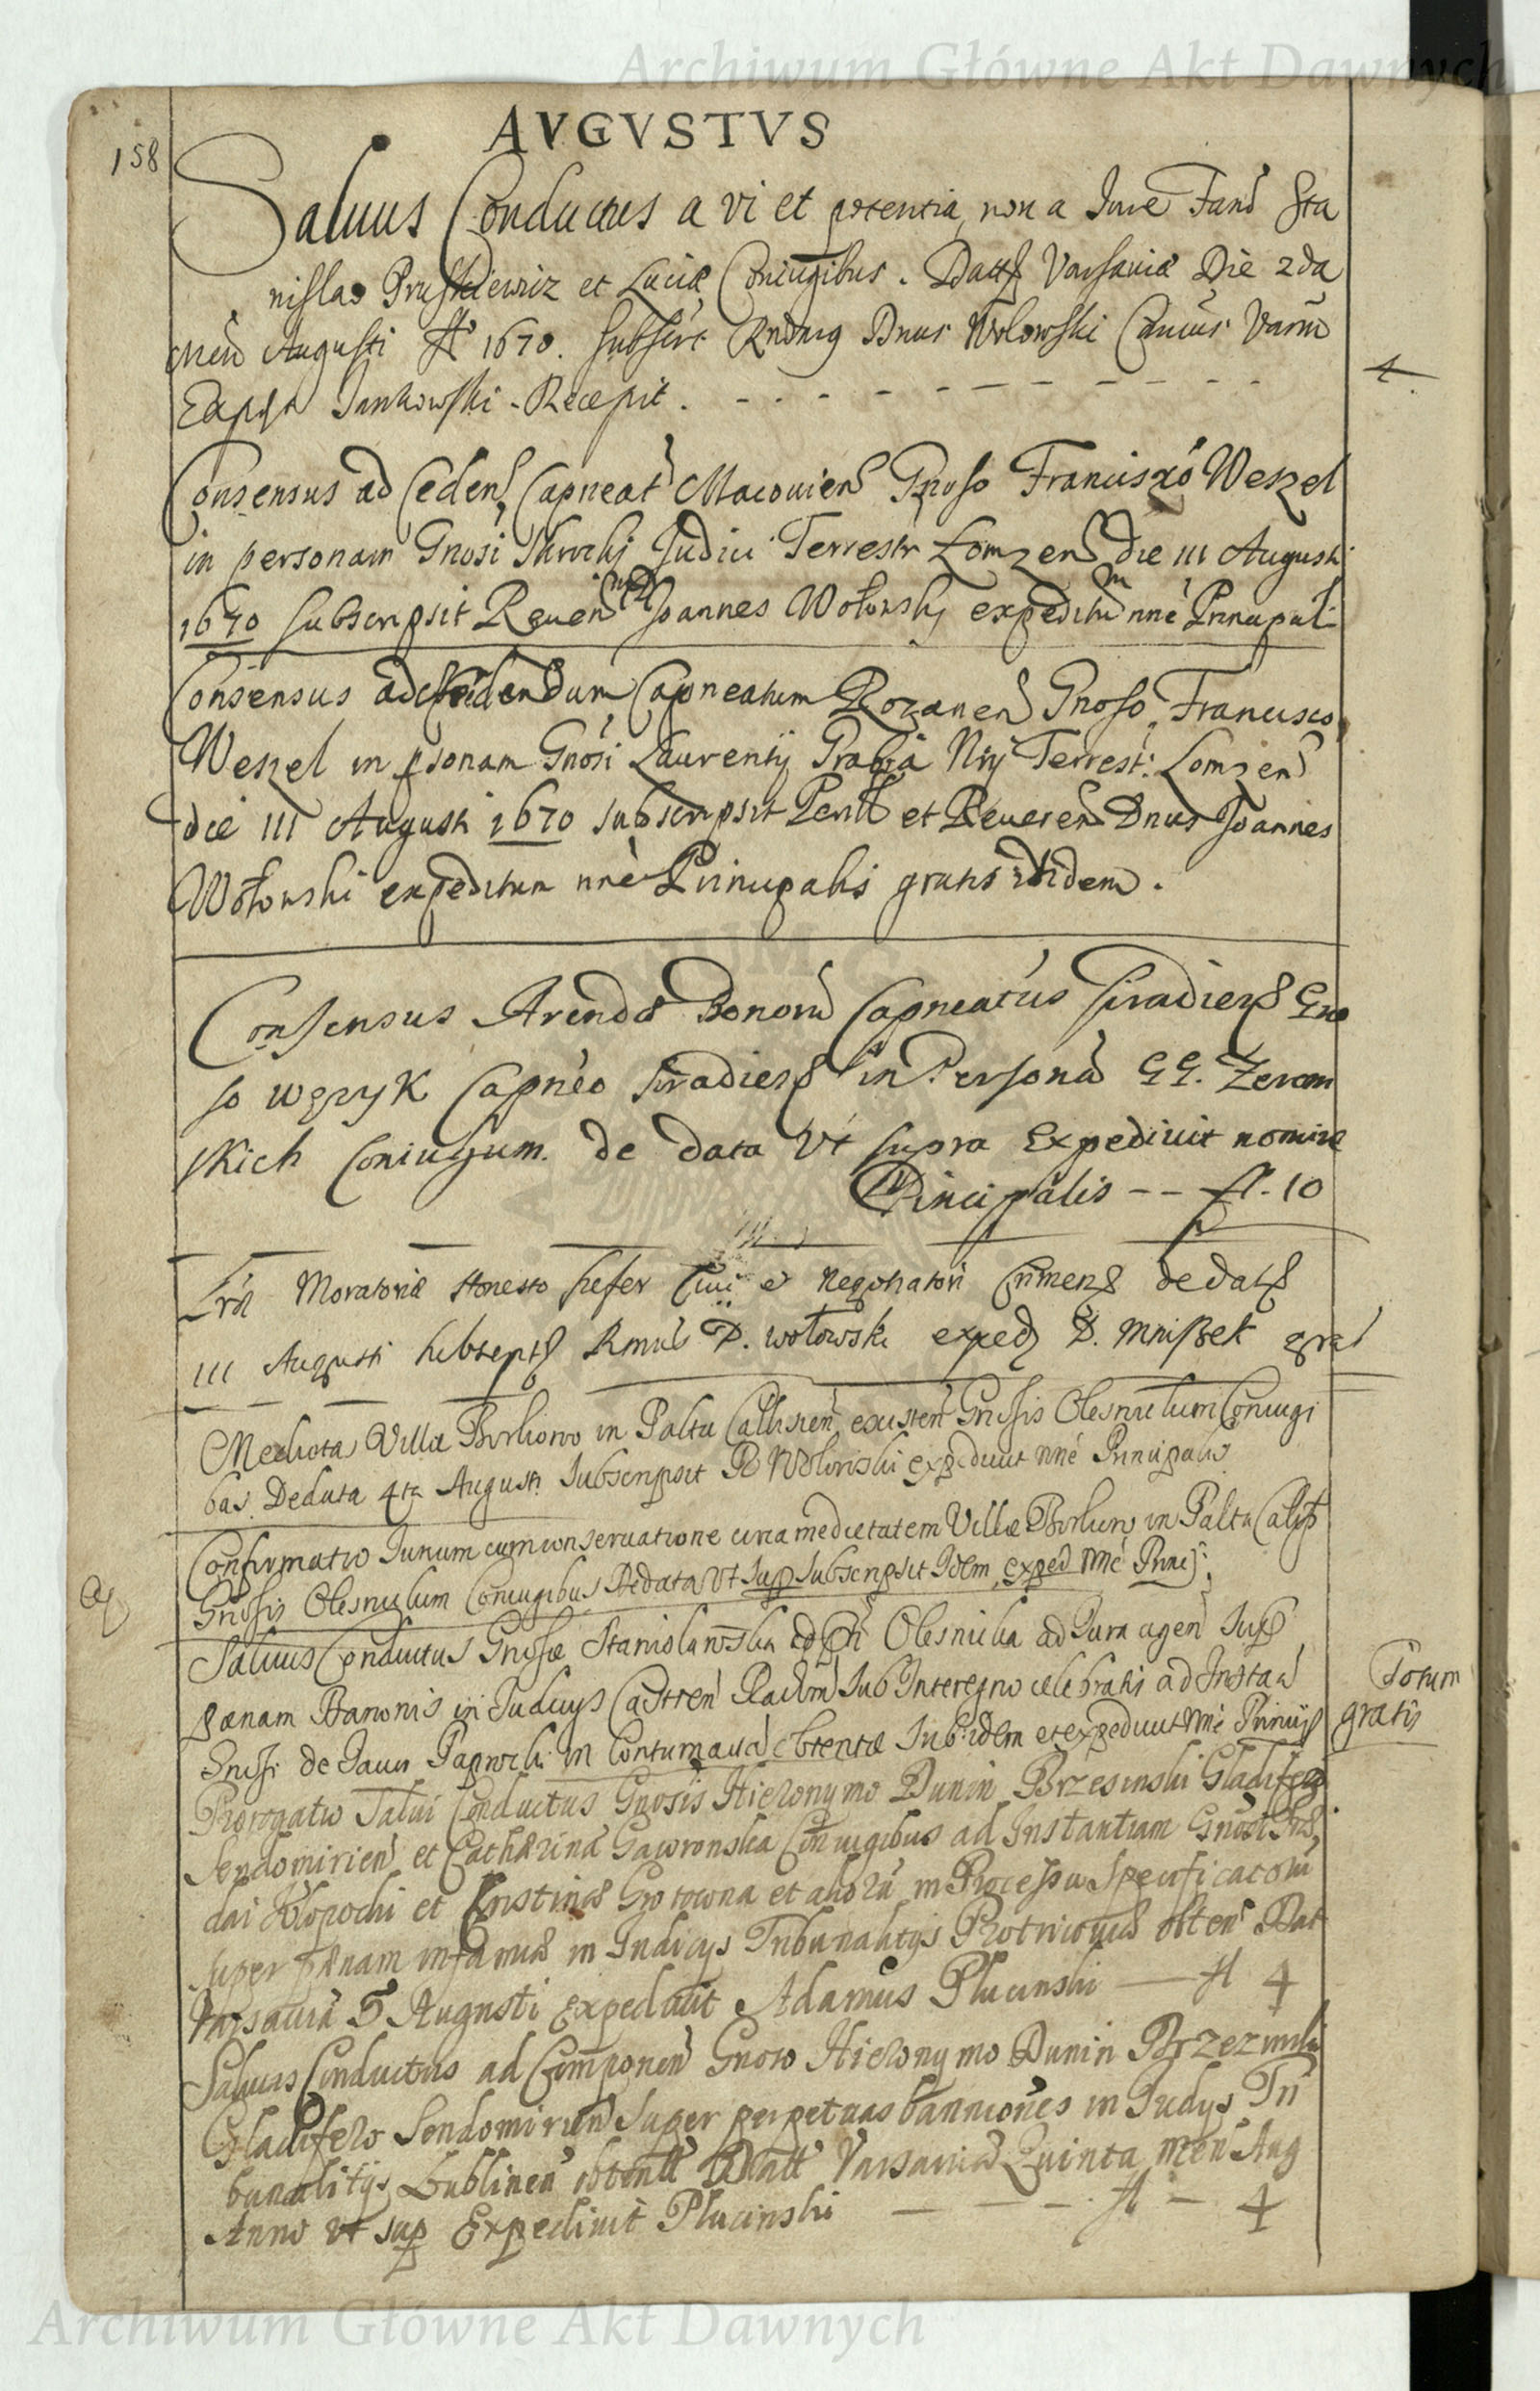 Archiwum Główne Akt Dawnych
158
AVGVSTVS
Saluus Conductus a vi et potentia, non a Jure Fand Sta
nislao Pruskiewicz et Luciæ Coniugibus. Datt Varsaviæ Die 2da
Mens Augusti Ao 1670. Subscrt Rndmq Dnus Wolowski Cancus Varm
Expdt Jankowski - Recepit.
4
Consensus ad Ceden Capneat Macouien Gnoso Franciszo Weszel
in personam Gnosi Judici Terrestr Lomzen die III Augusti
1670 subscripsit Reuen Joannes Wołowsky expeditum nne Principal
Consensus ad Cedendum Capneatum Rozanen Gnoso Francisco
Weszel in psonam Gnosi Laurentij Grabia Nrij Terrest: Lomzen
die III Augusti 1670 subscripsit Perill et Reueren Dnus Joannes
Wołowski expeditum nne Principalis gratis ibidem.
Consensus Arendæ Bonoru Capneatus siradiens Gno
so Węzyk Capneo siradiens in Personã GG. Zerom
skich Coniugum. de data Vt supra Expediuit nomine
Principalis -- fl. 10
Lræ Moratoriæ Honesto sefer Ciui et Negotiatori de dat
III Augusti subscpt Rmus D. wołowski exped D. Mniszek gra
Medietas Villæ in Paltu Callisien existen Gnosis Olesnickim Coniugi
bus. De data 4ta Augusti Subscripsit R Wolowski expediuit nne Principalis
Confirmatio Jurium cum conseruatione circa medietatem Villæ in Paltu Calis
Gnosis Olesnickim Coniugibus De data vt sup subscripsit Idem, exped nne Princ:
Saluus Conductus Gnosæ Stanislawska Olesnicka ad Jura agen Sup
pænam Bannonis in Judicijs Castren Radom sub Interegno celebratis ad Instan
Gnosi de Paprocki in Contumatia obtentæ Sub: idem et expediuit nne Principis
Totum
gratis
Prorogatio Salui Conductus Gnosis Hieronymo Dunin Brzesinski Gladifero
Sendomirien et Catharina Gawronska Coniugibus ad Instantiam Gnosi
dai Kłopocki et Cristinæ Grotowna et alioru in Processu Specificatoru
super pænam infamiæ in Judicijs Tribunalitijs Petricouiæ obten Dat
Varsauiæ 5 Augusti Expediuit Adamus Plucinski — fl 4
Saluus Conductus ad Componen Gnoso Hieronymo Dunin Brzezinski
Gladifero Sendomirien Super perpetuas banniones in Judijs Tri
bunalitijs Lublinen obtent Datt Varsauiæ Quinta Men Aug
Anno vt sup Expediuit Plucinski — — — fl — 4
Archiwum Główne Akt Dawnych